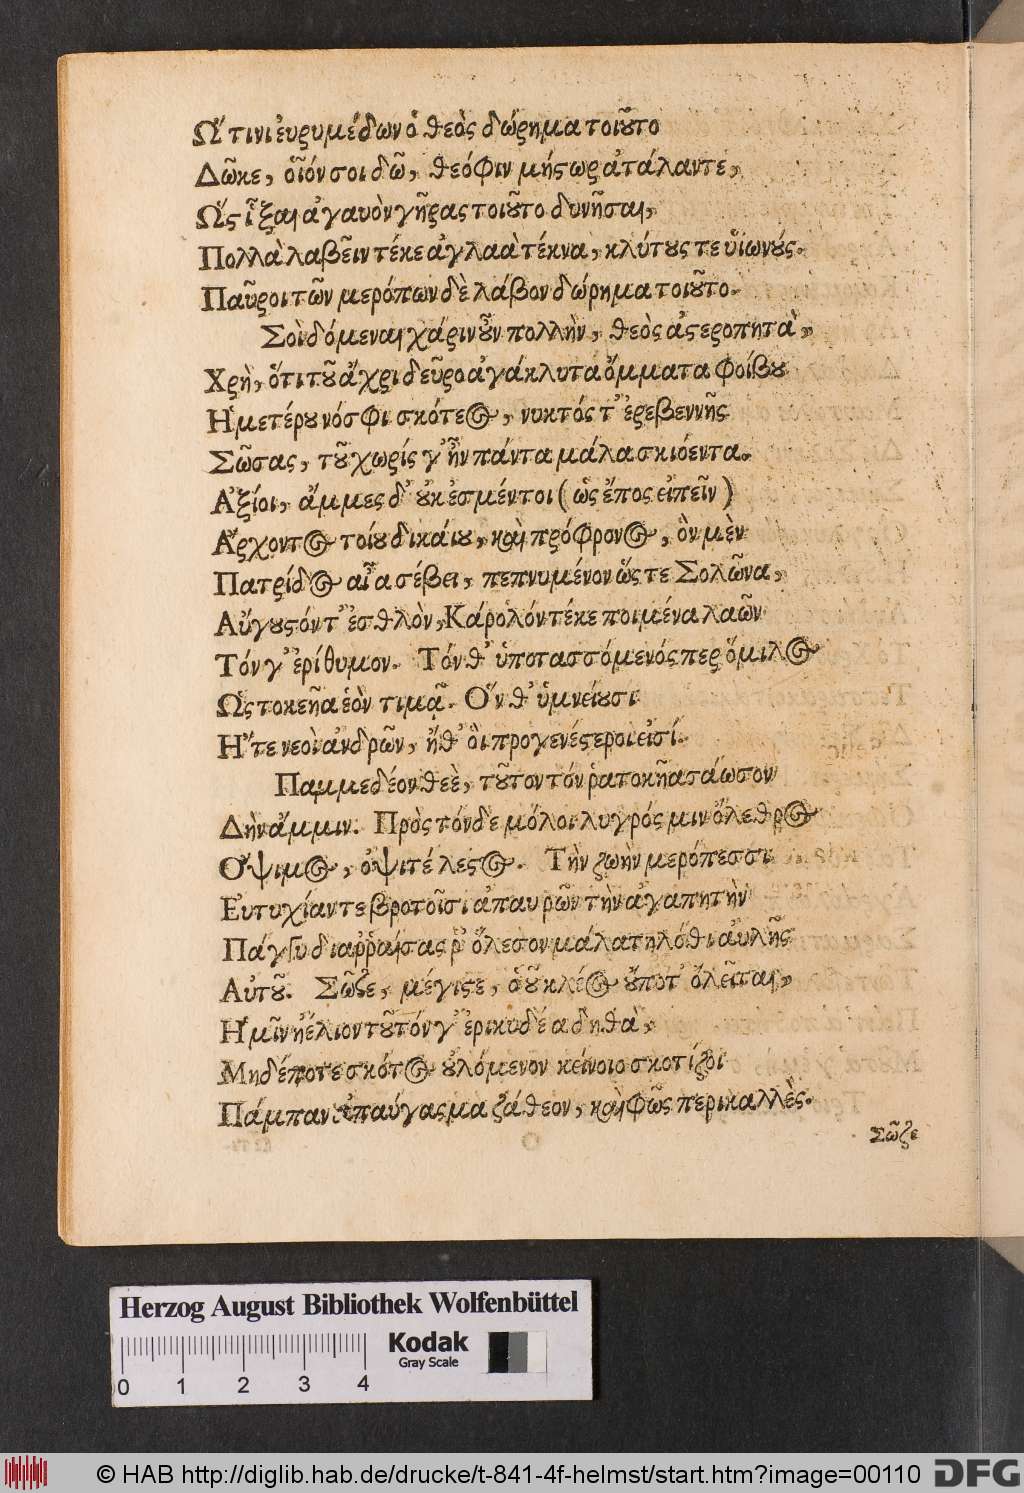 Ὥ τινι ἐυρυμέδων ὁ θεὸς δώρημα τοιοῦτο
Δῶκε, οἷόν σοι δῶ, θεόφιν μήςωρ ἀτάλαντε,
Ὥς ἷξαι ἀγαυὸν γῆρας τοιοῦτο δυνῆσαι,
Πολλὰ λαβεῖν τέκε ἀγλαὰ τέκνα, κλύτους τε ὑϊωνούς.
Παῦροι τῶν μερόπων δὲ λάβον δώρημα τοιοῦτο.
Σοὶ δόμεναι χάριν οὖν πολλὴν, θεὸς ἀςεροπητὰ,
Χρὴ, ὅτι τοῦ ἄχρι δεῦρο ἀγάκλυτα ὄμματα Φοίβου
Ἡμετέρου νόσφι σκότεος, νυκτός τ' ἐρεβεννῆς
Σῶσας, τοῦ χωρίς γ' ἦν πάντα μάλα σκιόεντα.
Ἀξίοι, ἄμμες δ' οὐκ ἐσμέν τοι (ὡς ἔπος εἰπεῖν)
Ἄρχοντος τοίου δικάιου, καὶ πρόφρονος, ὃν μὲν
Πατρίδος αἶα σέβει, πεπνυμένον ὥς τε Σολῶνα,
Αὔγουςόν τ' ἐσθλὸν, Κάρολόν τέ κε ποιμένα λαῶν
Τόν γ' ἐρίθυμον. Τόν θ' ὑποτασσόμενός περ ὅμιλος
Ὥς τοκεῆα ἑὸν τιμᾷ. Ὅν θ' ὑμνείουσι
Ἠ'τε νεοὶ ἀνδρῶν, ἤθ' ὃι προγενέςεροι εἰσί.
Παμμεδέον θεὲ, τοῦτον τόν ῥα τοκῆα σάωσον
Δὴν ἄμμιν. Πρὸς τόνδε μόλοι λυγρός μιν ὄλεθρος
Ὄψιμος, ὀψιτέλεςος. Τὴν ζωὴν μερόπεσσι
Ἐυτυχίαν τε βροτοῖσι ἀπαυρῶν τὴν ἀγαπητὴν
Πάγχυ διαῤῥαίσας ῥ' ὄλεσον μάλα τηλόθι ἀυλῆς
Αὐτοῦ. Σῶζε, μέγιςε, ὁ οὗ κλέος οὔποτ' ὀλεῖται,
Ἡμῖν ἠέλιον τοῦτόν γ' ἐρικυδέα δηθὰ,
Μηδέποτε σκότος οὐλόμενον κείνοιο σκοτίζοι
Πάμπαν ἐπαύγασμα ζάθεον, καὶ φῶς περικαλλὲς.
Σῶζε
Herzog August Bibliothek Wolfenbüttel
Kodak
Gray Scale
0 1 2 3 4
© HAB http://diglib.hab.de/drucke/t-841-4f-helmst/start.htm?image=00110
DFG